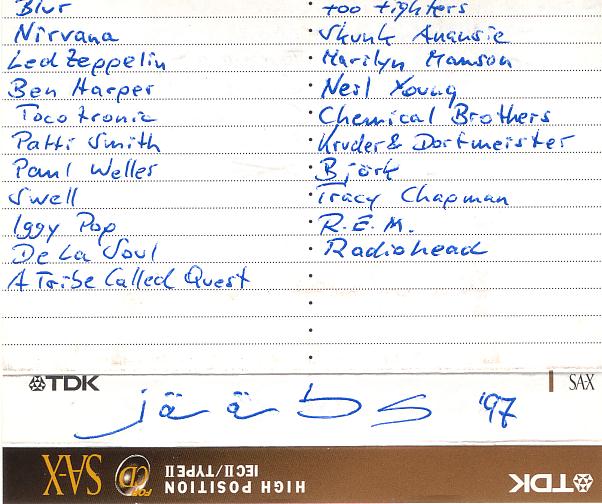 Blur
Nirvana
Led Zeppelin
Ben Harper
Tocotronic
Patti Smith
Paul Weller
Swell
Iggy Pop
De La Soul
A Tribe Called Quest
Foo Fighters
Skunk Anansie
Marilyn Manson
Neil Young
Chemical Brothers
Kruder & Dorfmeister
Björk
Tracy Chapman
R.E.M.
Radiohead
TDK
SA-X
'97
SA-X
FOR CD
HIGH POSITION
IEC II / TYPE II
TDK